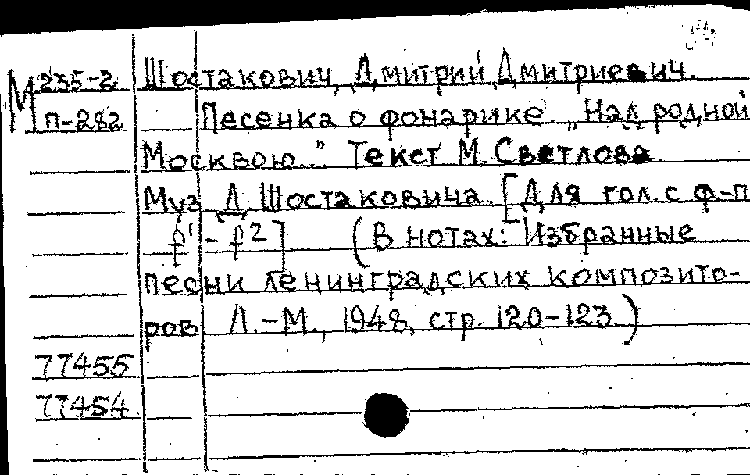 М 235-2 Шостакович, Дмитрий Дмитриевич.
п-282 Песенка о фонарике. „Над родной
Москвою..." Текст М. Светлова.
Муз. Д. Шостаковича. [Для гол. с ф-п
f¹ - f2] (В нотах: Избранные
песни ленинградских композито-
ров. Л.-М., 1948, стр. 120-123.)
77455
77454